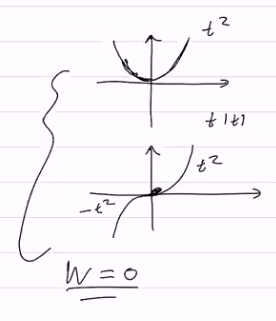 t²
t|t|
t²
-t²
W = 0